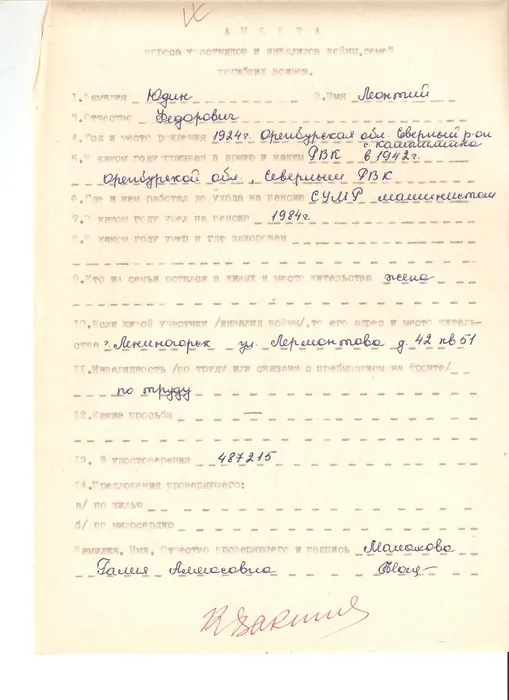 АНКЕТА
опроса участников и инвалидов войны, семей
погибших воинов.
1. Фамилия Юдин 2. Имя Леонтий
3. Отчество Федорович
4. Год и место рождения 1924г. Оренбурская обл. Северный р-он
с
5. В каком году призван в армию и каким РВК в 1942г.
Оренбурской обл, Северным РВК
6. Где и кем работал до ухода на пенсию СУМР машинистом
7. В каком году ушел на пенсию 1984г.
8. В каком году умер и где захоронен
9. Кто из семьи остался в живых и место жительства жена
10. Если живой участник /инвалид войны/, то его адрес и место житель-
ства г. Лениногорск ул. Лермонтова д. 42 кв 51
11. Инвалидность /по труду или связана с пребыванием на фронте/
по труду
12. Какие просьбы —
13. № удостоверения 487215
14. Предложения проверяющего:
а/ по жилью
б/ по милосердию
Фамилия, Имя, Отчество проверяющего и подпись Малахова
Галия Алмасовна